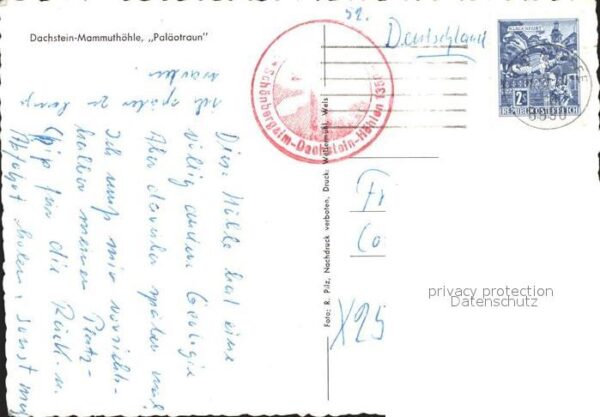 Dachstein-Mammuthöhle, „Paläotraun"
Diese Höhle hat eine
völlig andere Geologie
Aber darüber später mal
Ich muß mir vorsichts-
halber meinen Platz-
für die Rück- u.
Abfahrt holen, sonst muß
ich später zu lange
warten.
Schönbergalm-Dachstein-Höhlen 1350
Foto: R. Pilz, Nachdruck verboten, Druck: Welsermühl, Wels
52.
Deutschland
KLAGENFURT
2S
REPUBLIK ÖSTERREICH
Fr
Co
X25
privacy protection
Datenschutz